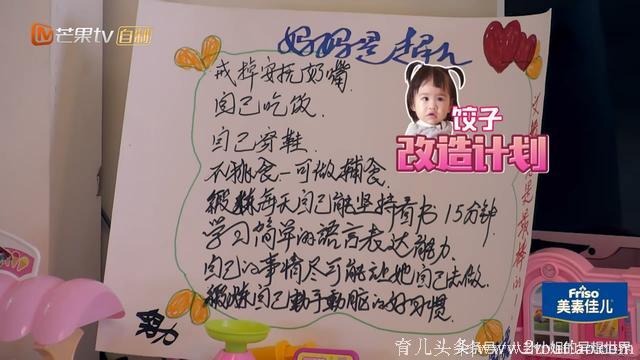 芒果tv 自制
妈妈是超人
戒掉安抚奶嘴
自己吃饭
自己穿鞋
不挑食一可做辅食
锻炼每天自己能坚持看书15分钟
学习简单的语言表达能力
自己的事情尽可能让她自己去做
锻炼自己動手動脑的好习惯
努力
饺子
改造计划
Friso
美素佳儿
育儿头条